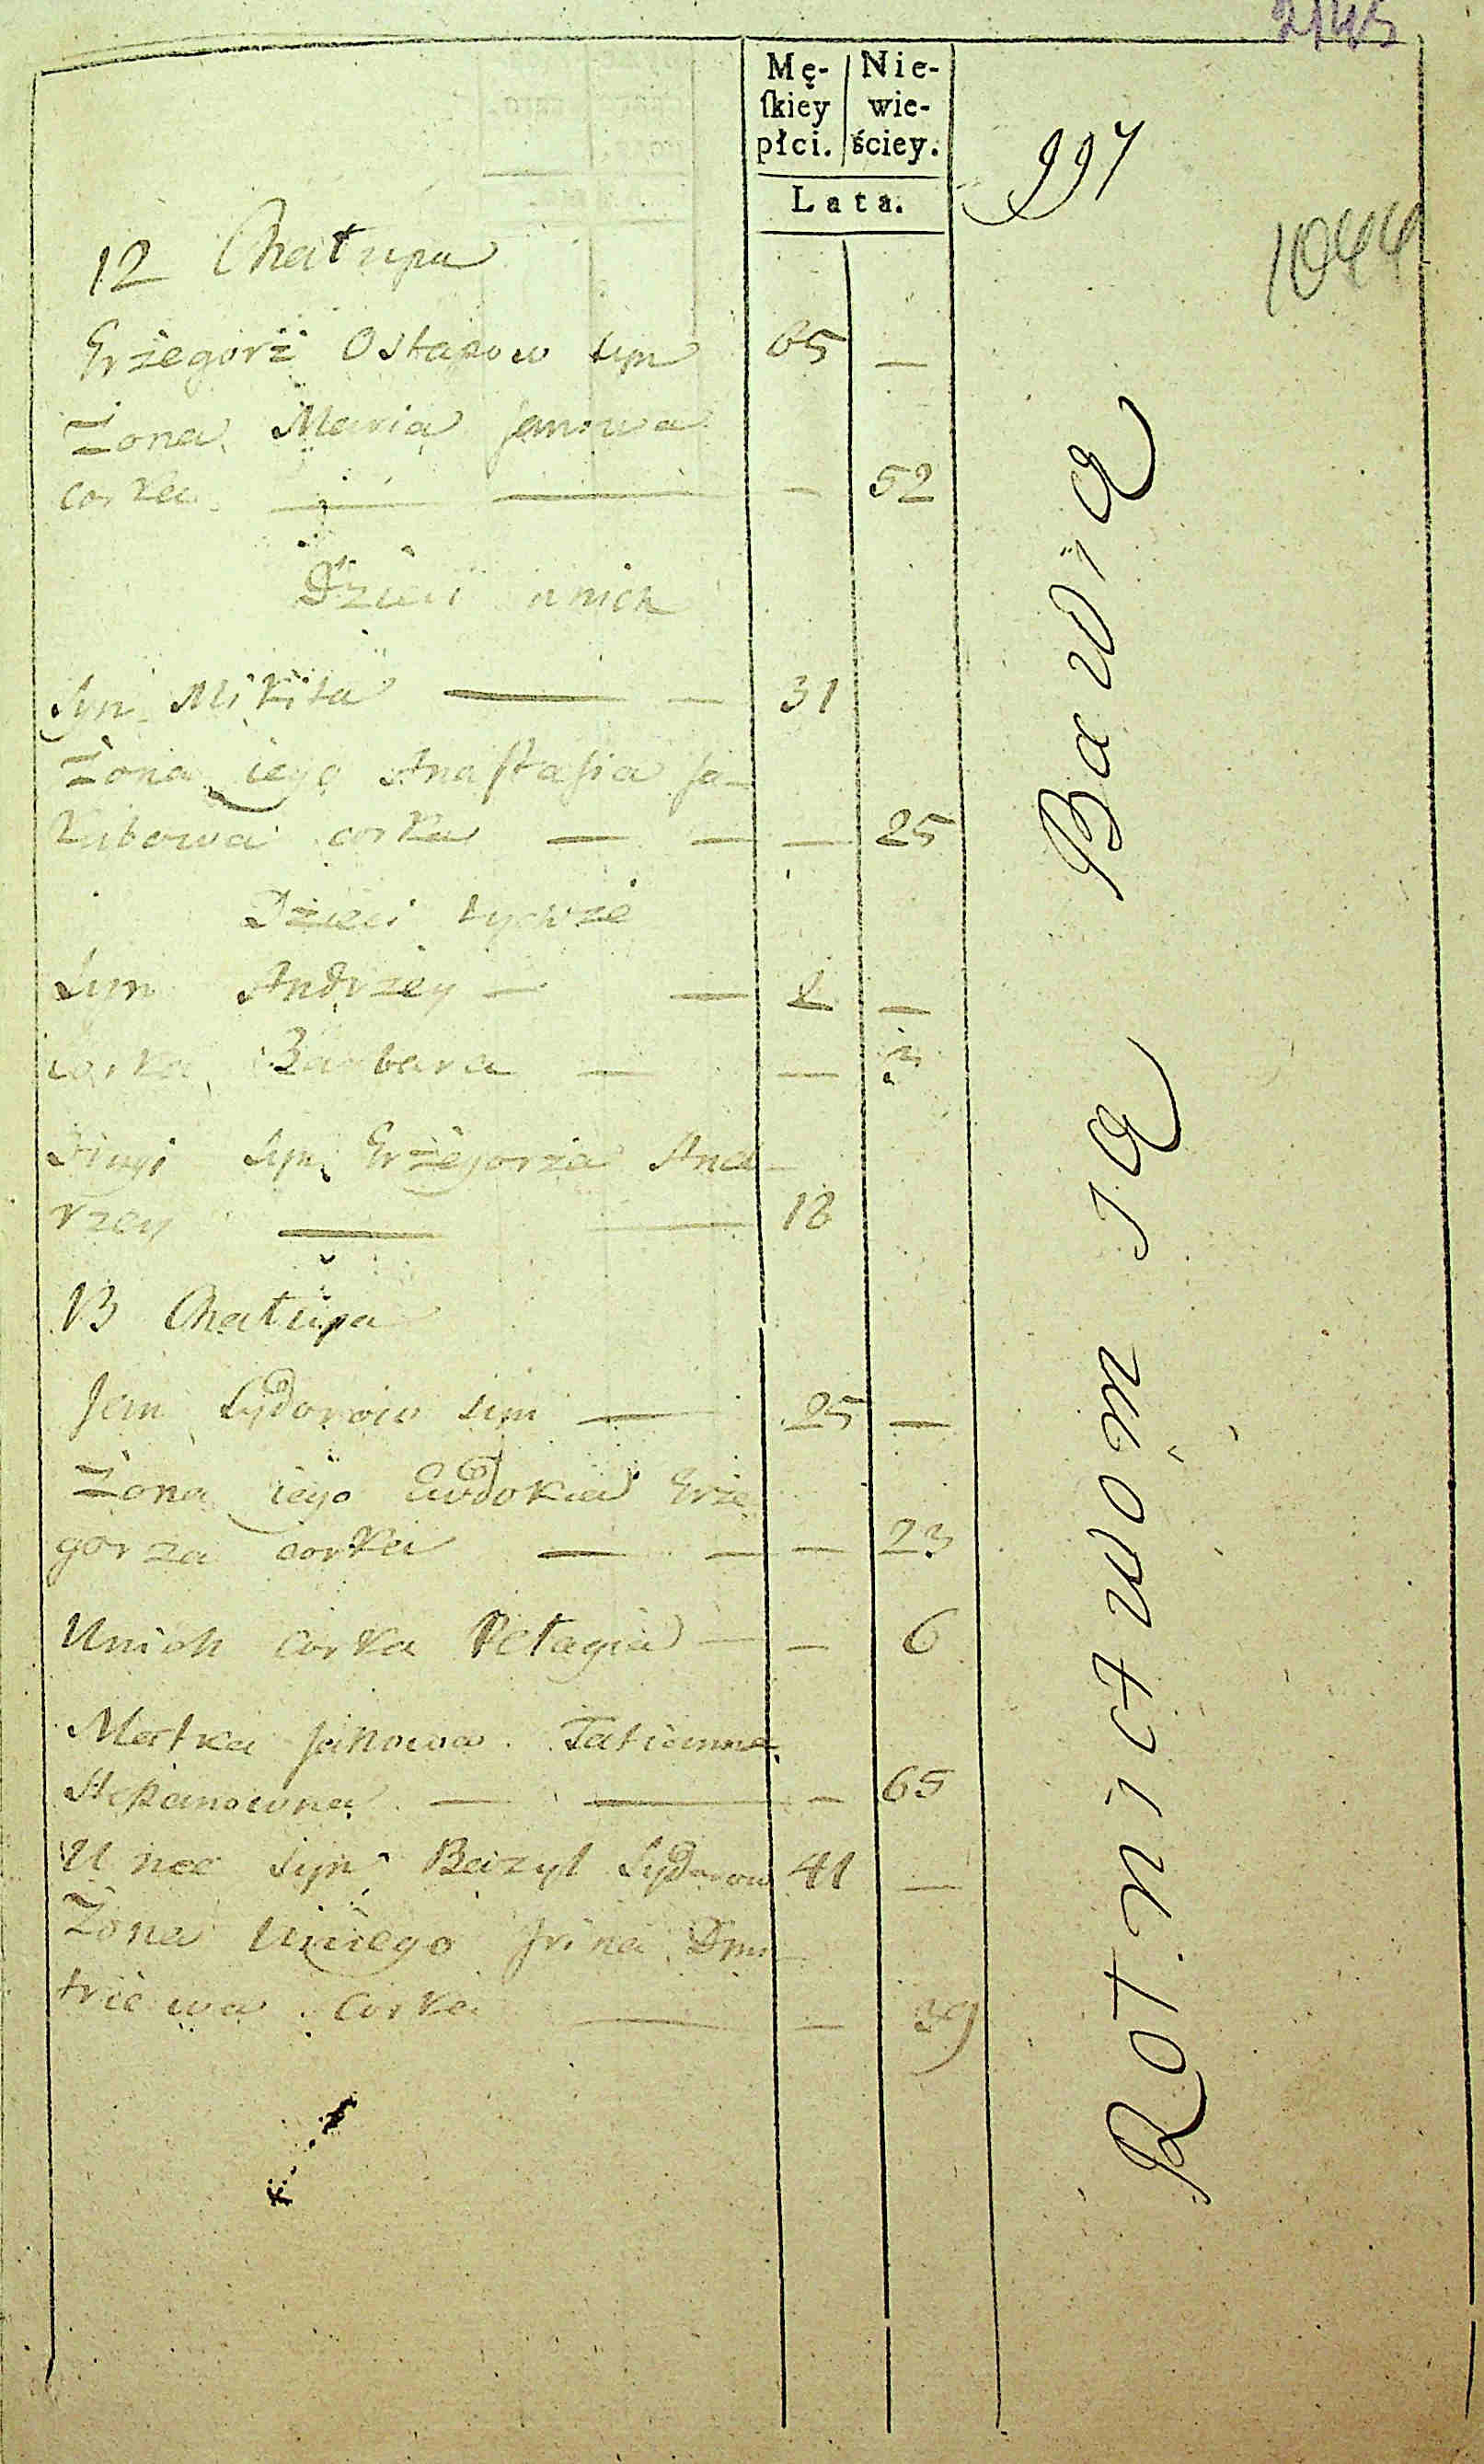 2145
Mę-
ſkiey
płci.
Nie-
wie-
ściey.
Lata.
997
1044
12 Chałupa
Grzegorz Ostapow syn 65 —
Żona Maria Janowa
corka — — — 52
Dzieci u nich
Syn Mikita — — 31
Żona iego Anastasia Ja-
kubowa corka — — — 25
Dzieci tychże
Syn Andrzey — — 1 —
Corka Barbara — — 3
Syn Grzegorza And-
rzey — — 18
13 Chałupa
Jan Sydorow syn — 25 —
Żona iego Ewdokia Grze
gorza corka — — — 23
U nich corka Pełagia — — 6
Matka Janowa Tatianna
Stepanowna — — — 65
U nee syn Bazyl Sydorow 41 —
Żona u niego Irina Dmi-
triewa corka — — 39
Rotnictwom ia Bawia